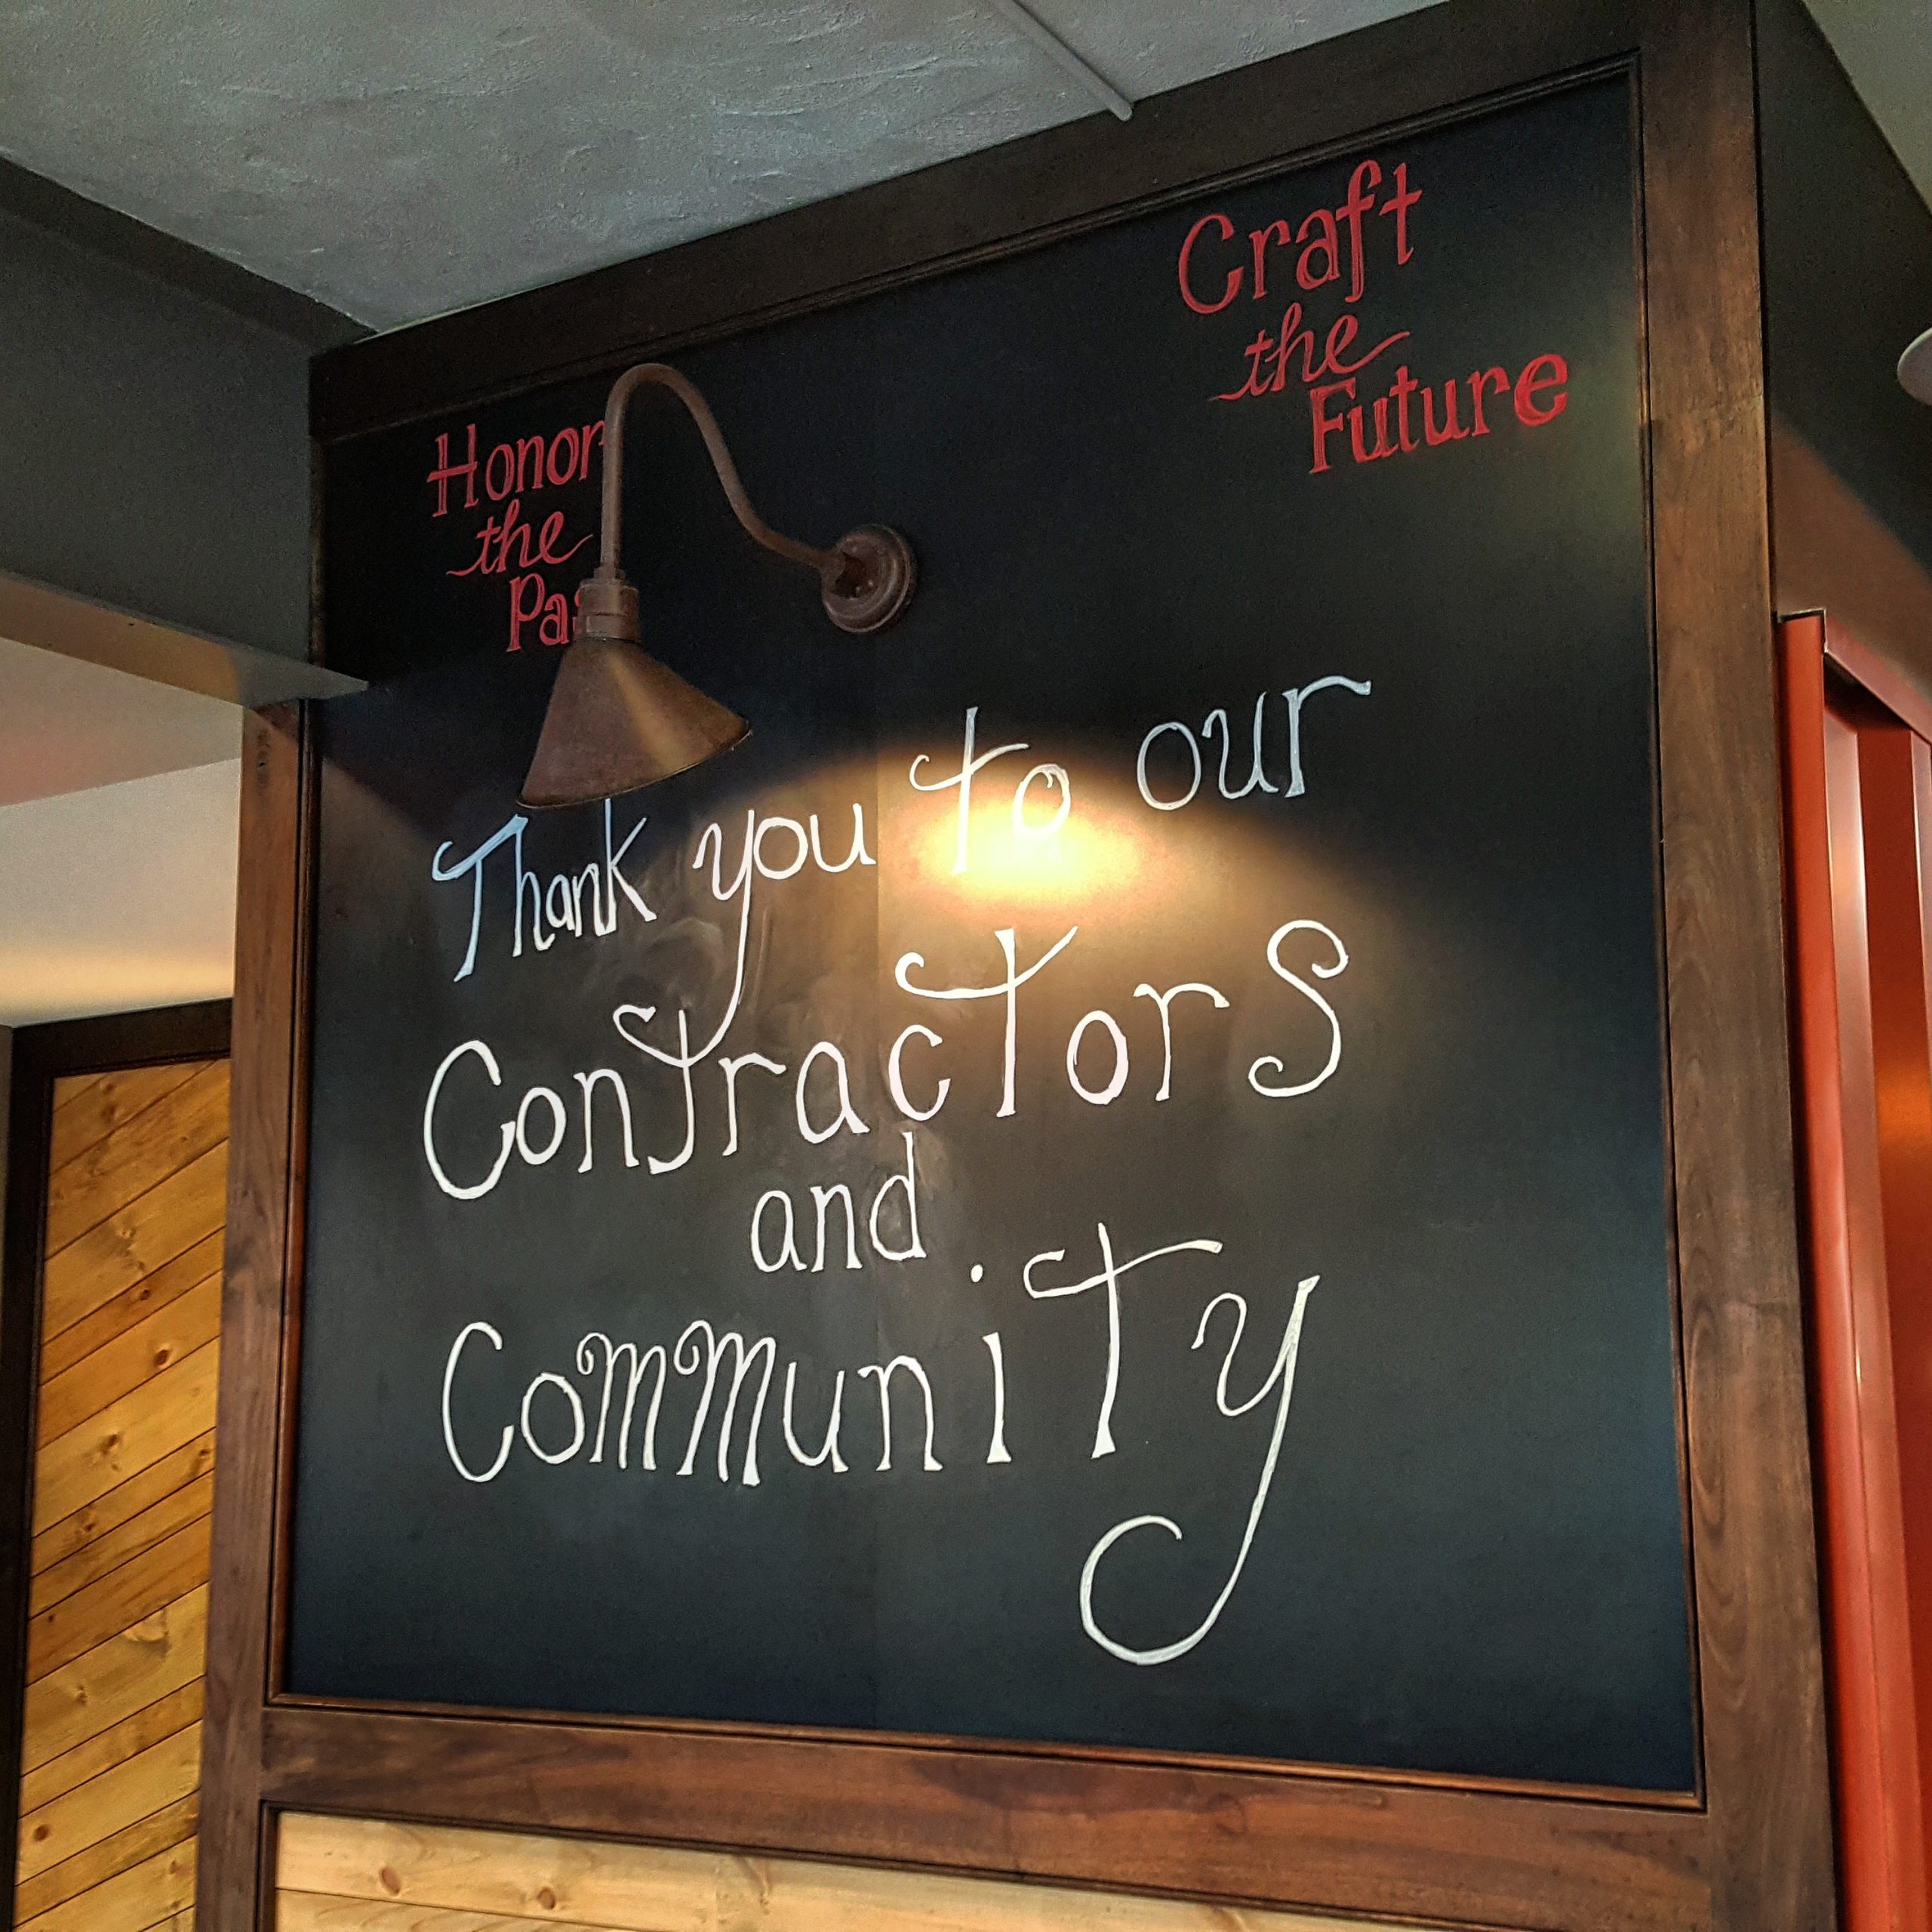 Honor
the
Craft
the
Future
Thank you to our
Contractors
and
Community